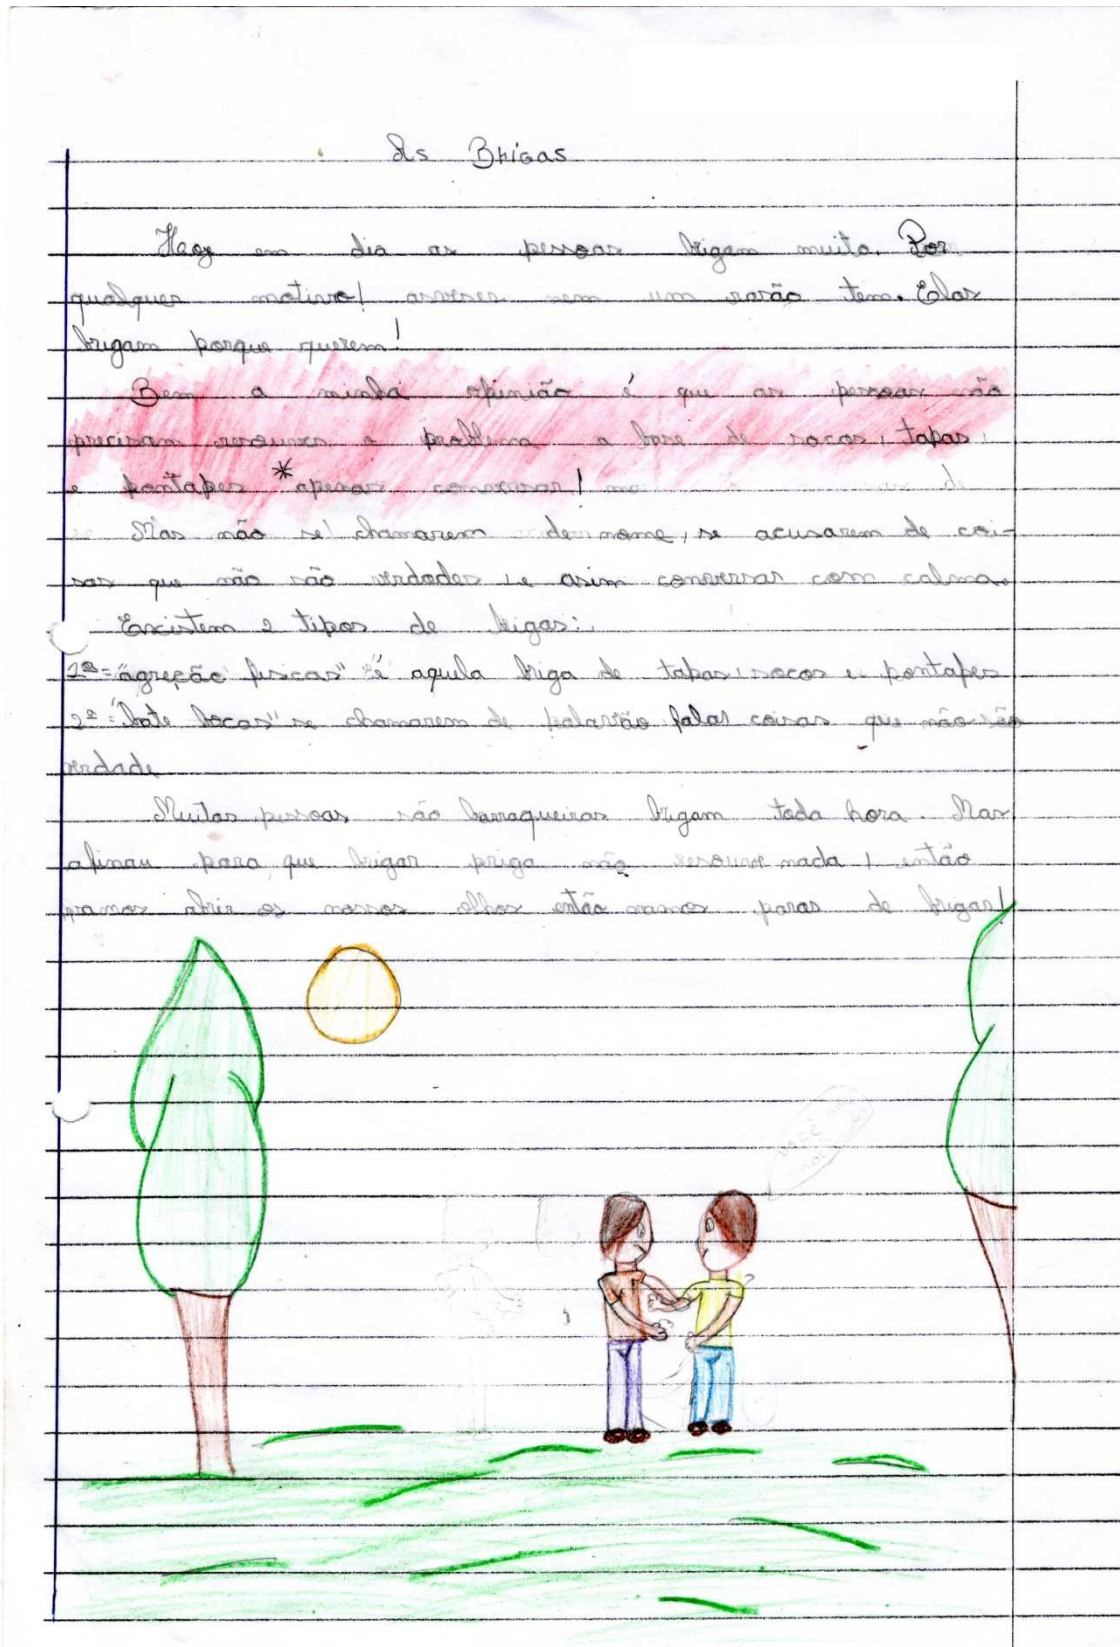 As Brigas
Heog em dia as pessoas brigam muito. Por
qualquer motivo! asveses nem um rasão tem. Elas
brigam porque querem!
Bem a minha opinião é que as pessoas não
precisam resouver o problema a base de socos, tapas,
e pontapes *apenas conversar!
Mas não se chamarem de nome, se acusarem de coi-
sas que não são verdades, e asim conversar com calma.
Existem 2 tipos de brigas:
1ª= "agreção fisicas" é aquela briga de tapas, socos e pontapes
2ª= "bate bocas" se chamarem de palavão falar coisas que não são
verdade
Muitas pessoas são barraqueiras brigam toda hora. Mas
afinau para que brigar priga não resouve nada, então
vamos abrir os nossos olhos então vamos paras de brigar!